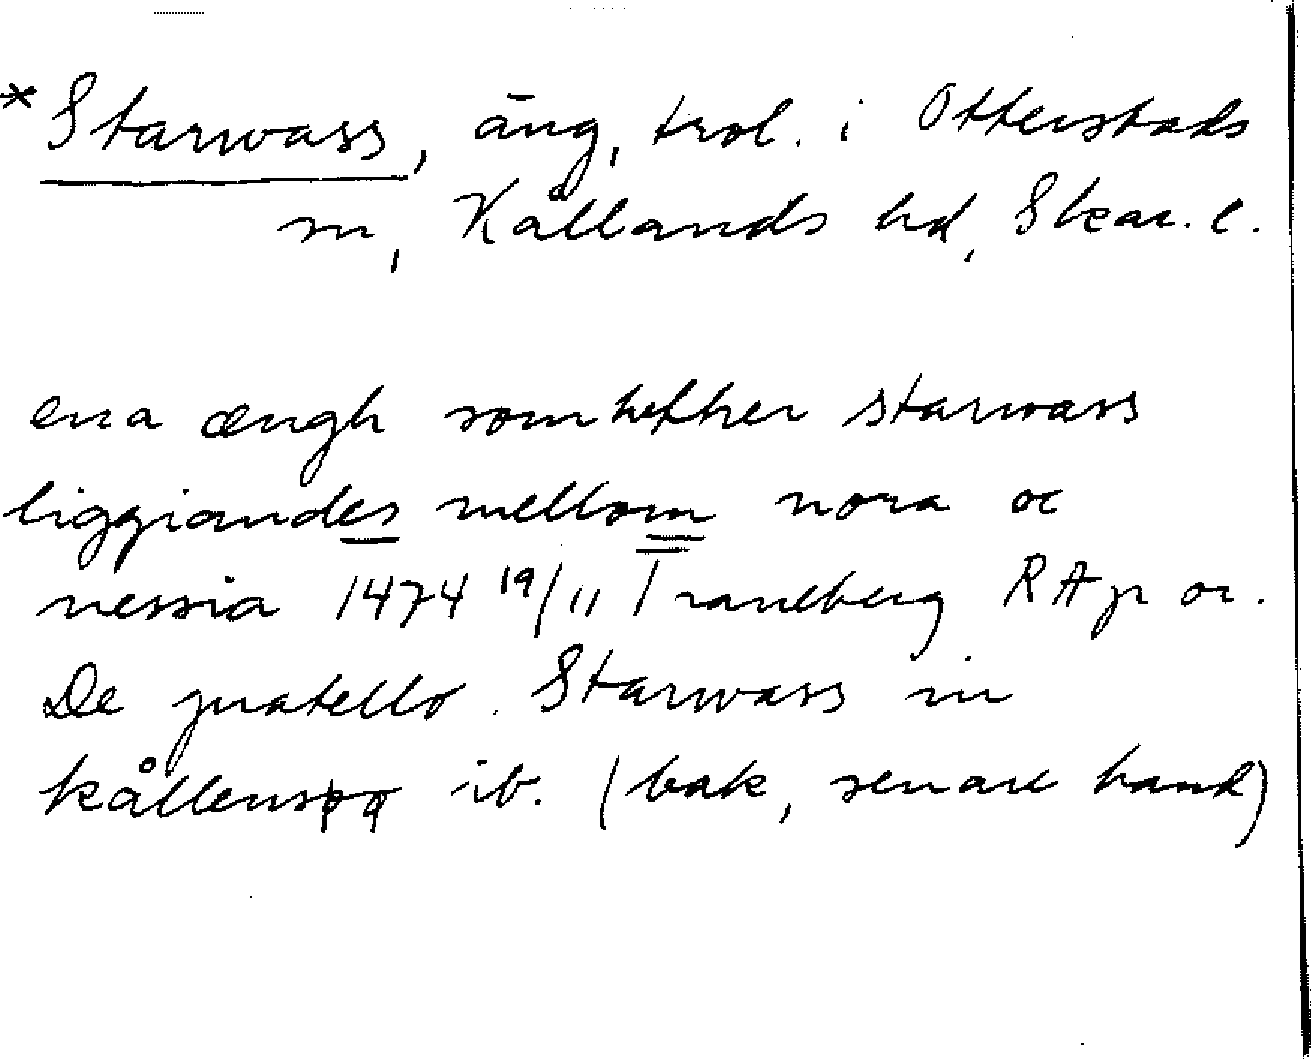 *Starwass, äng, trol. i Otterstads
sn, Kållands hd, Skar. l.
ena ængh som hether starwass
liggiandes mellom nora oc
nessia 1474 19/11 Traneberg RAp or.
De pratello. Starwass in
kållens ib. (bak, senare hand)